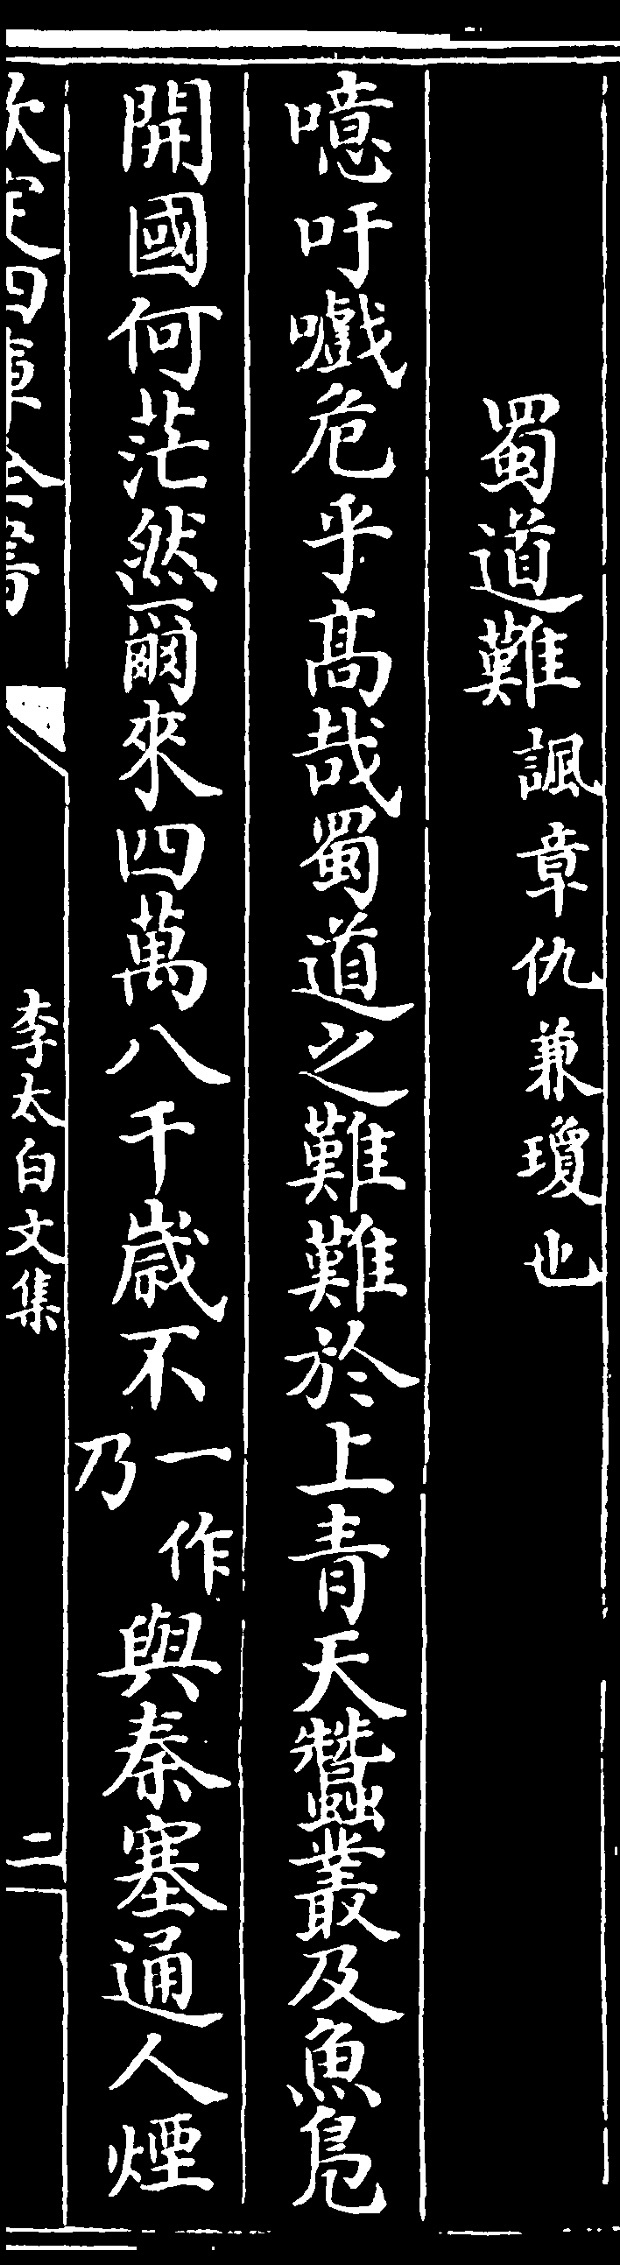 蜀道難諷章仇兼瓊也
噫吁嚱危乎髙哉蜀道之難難於上青天蠶叢及魚鳬
開國何茫然爾來四萬八千歲不一作乃與秦塞通人煙
欽定四庫全書
李太白文集
二